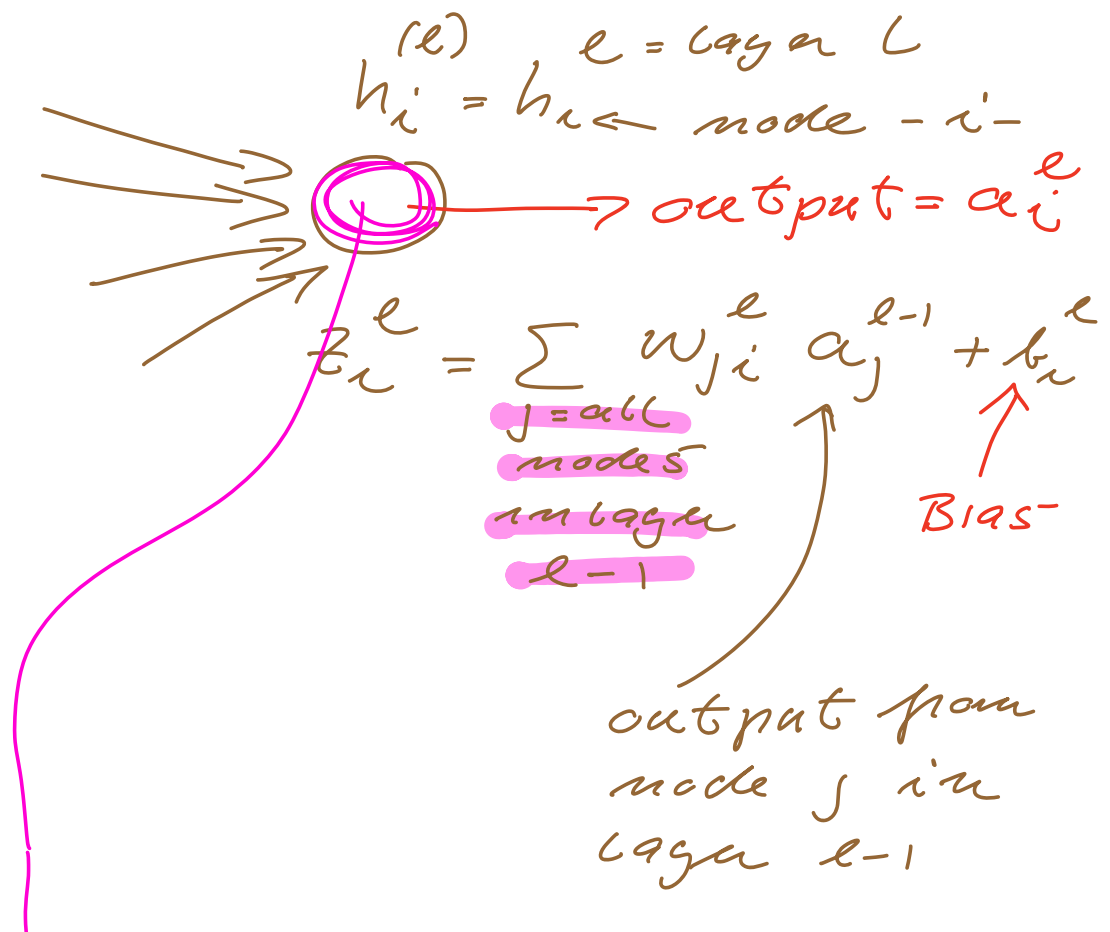 (l) l = layer l
h_i = h_i ← node - i -
→ output = a_i^l
z_i^l = ∑ w_{ji}^l a_j^{l-1} + b_i^l
j = all
nodes
in layer
l - 1
Bias
output from
node j in
layer l-1